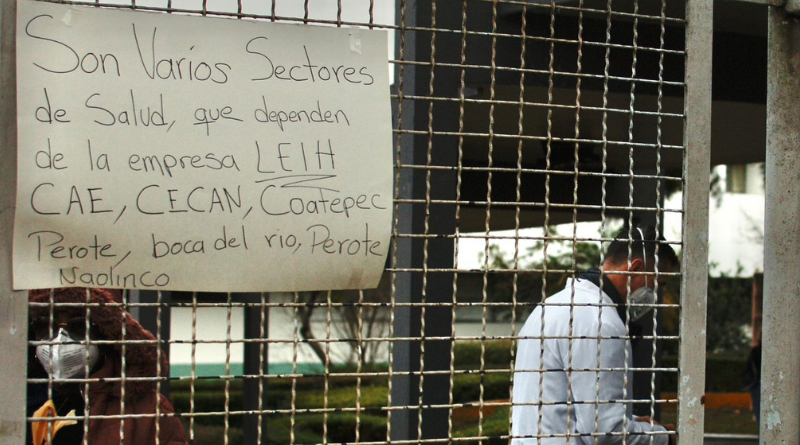 Son Varios Sectores
de Salud, que dependen
de la empresa LEIH
CAE, CECAN, Coatepec
Perote, boca del rio, Perote
Naolinco